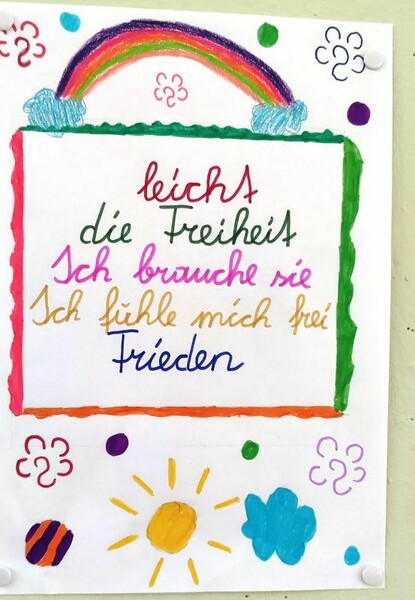 leicht
die Freiheit
Ich brauche sie
Ich fühle mich frei
Frieden